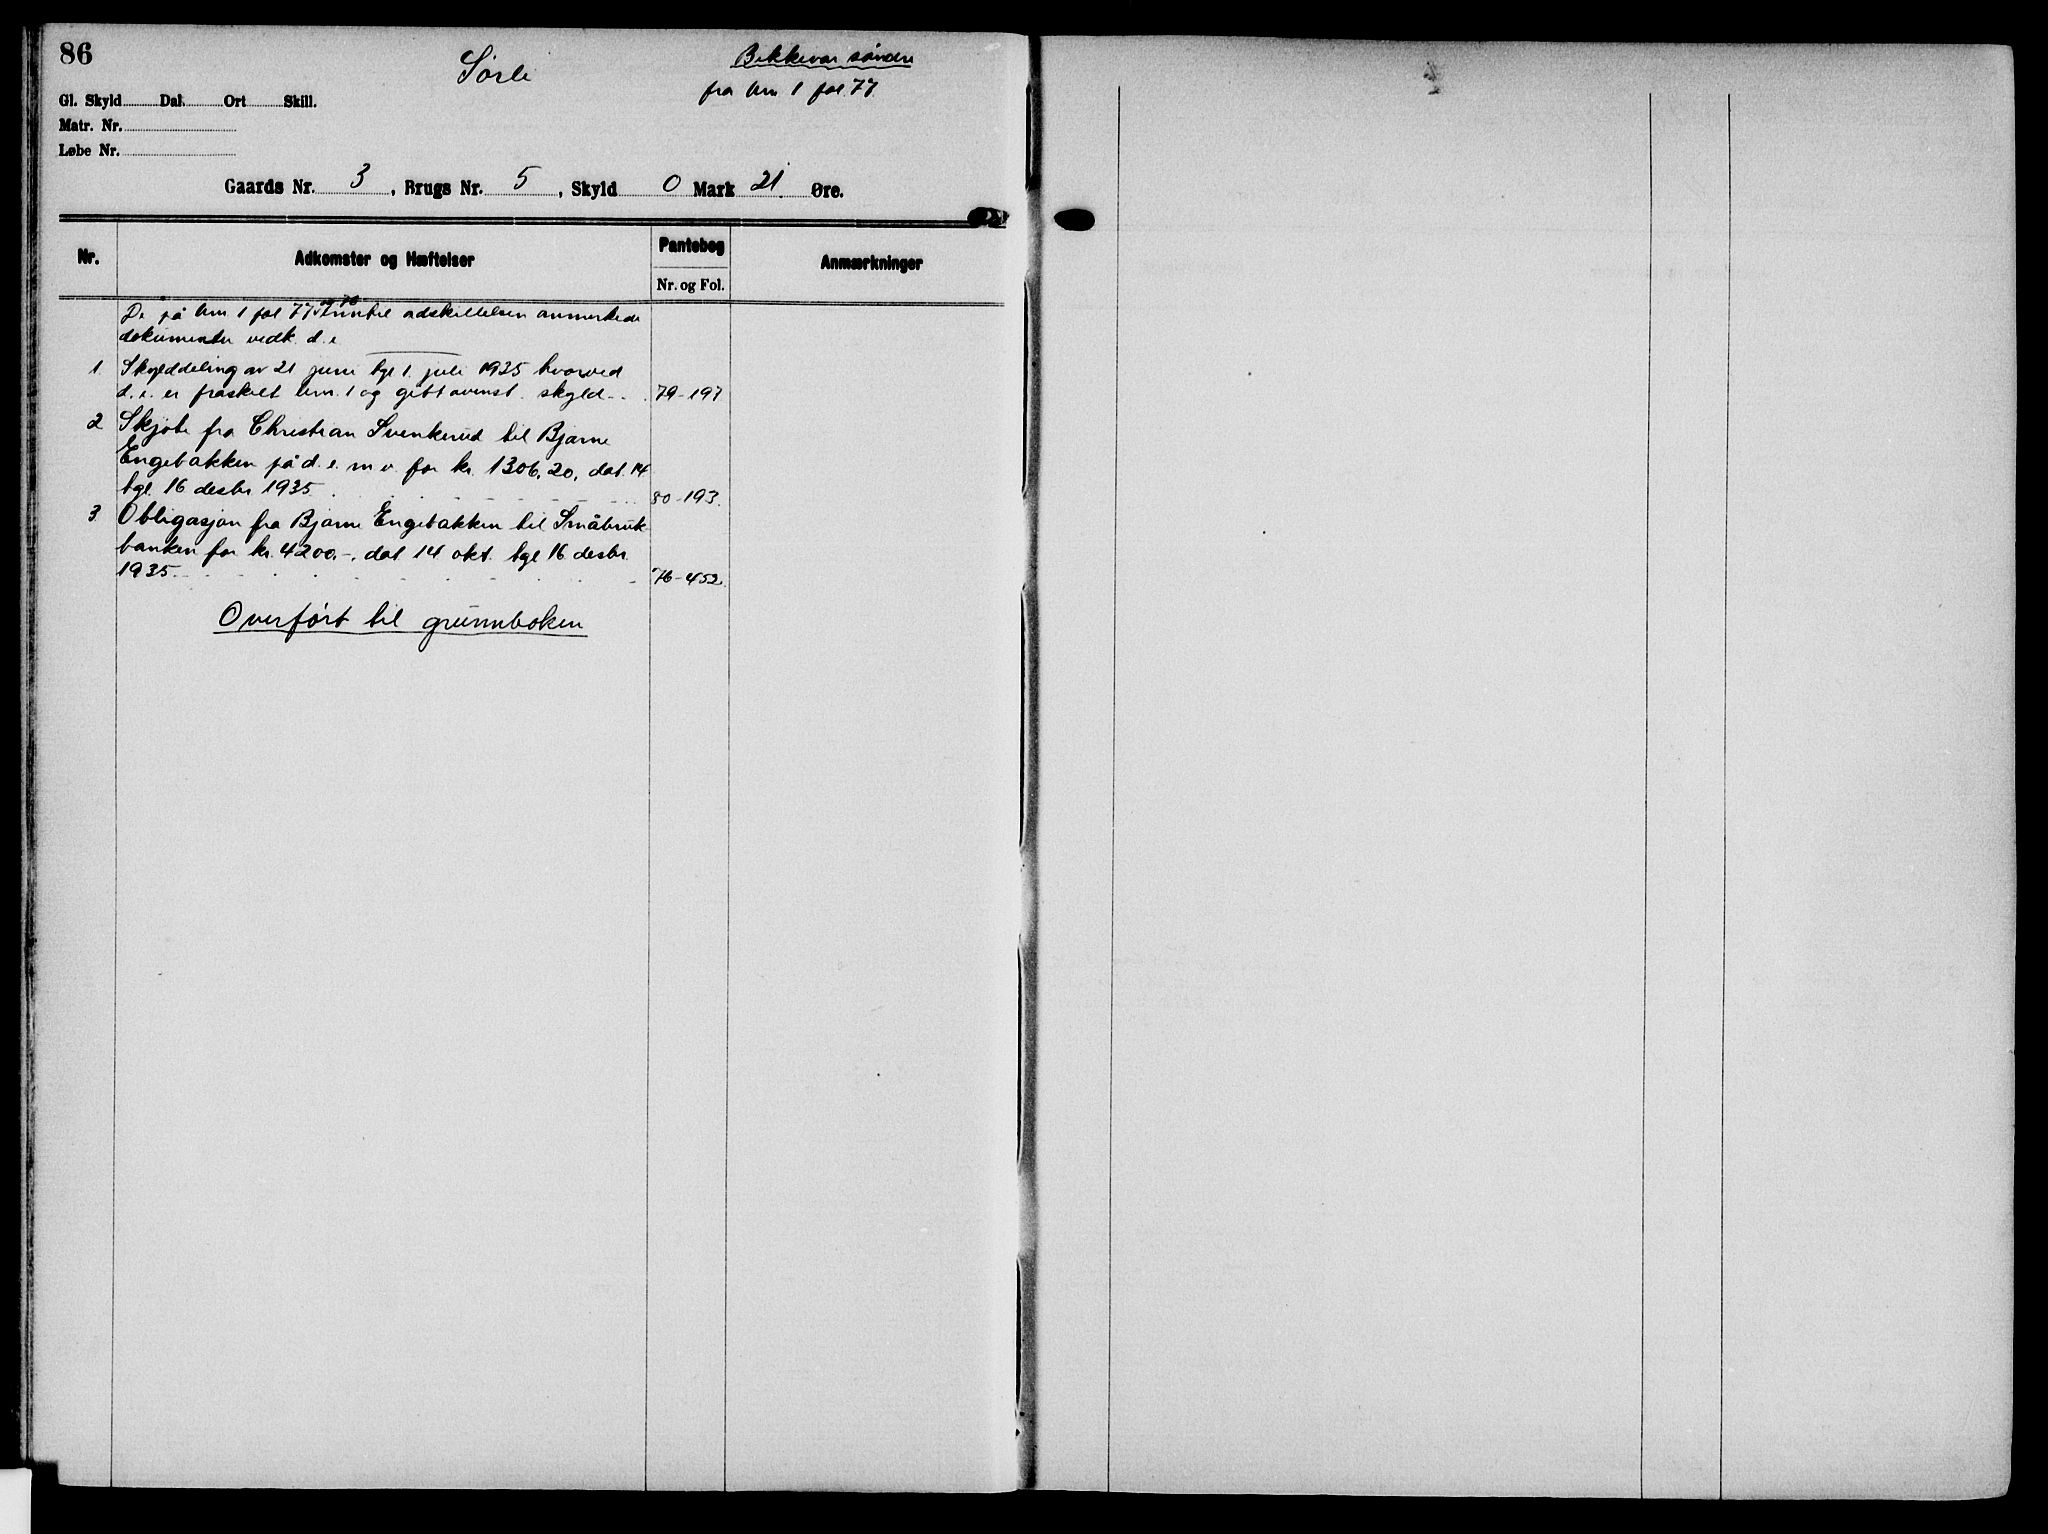 86
Sørli
Bekkevar søndre
fra brn 1 fol. 77.
Gl. Skyld Dal. Ort Skill.
Matr. Nr.
Løbe Nr.
Gaards Nr. 3, Brugs Nr. 5, Skyld 0 Mark 21 Øre.
Nr. Adkomster og Hæftelser Pantebog Anmærkninger
Nr. og Fol.
De på brn 1 fol 77 og 78 inntil adskillelsen anmerkede
dokumenter vedk. d.e.
1. Skylddeling av 21 juni tgl 1. juli 1935 hvorved
d.e. er fraskilt brn. 1 og gitt ovenst. skyld 79-197
2 Skjøte fra Christian Svenkerud til Bjarne
Engebakken på d.e. m v. for kr. 1306,20, dat. 14
tgl. 16 desbr 1935 80-193.
3. Obligasjon fra Bjarne Engebakken til Småbruk-
banken for kr. 4200.-, dat 14 okt. tgl 16 desbr.
1935 76-452.
Overført til grunnboken